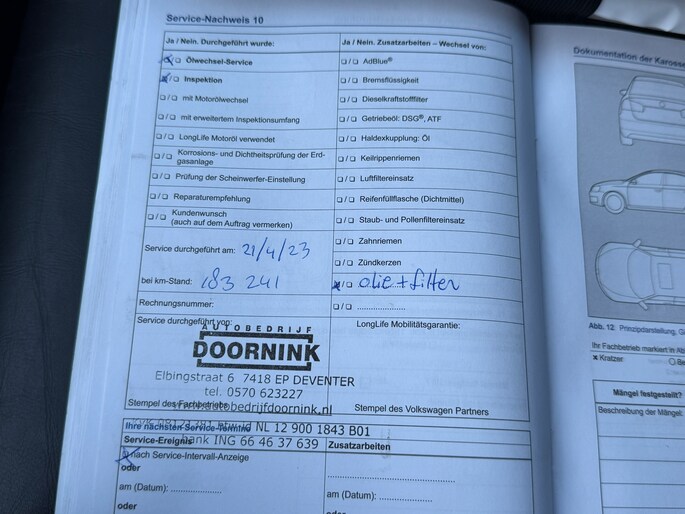 Service-Nachweis 10
Ja / Nein. Durchgeführt wurde:
Ölwechsel-Service
Inspektion
mit Motorölwechsel
mit erweitertem Inspektionsumfang
LongLife Motoröl verwendet
Korrosions- und Dichtheitsprüfung der Erd-
gasanlage
Prüfung der Scheinwerfer-Einstellung
Reparaturempfehlung
Kundenwunsch
(auch auf dem Auftrag vermerken)
Service durchgeführt am: 21/4/23
bei km-Stand: 183 241
Rechnungsnummer:
Service durchgeführt von:
AUTOBEDRIJF
DOORNINK
Elbingstraat 6 7418 EP DEVENTER
tel. 0570 623227
Stempel des Fachbetriebs
www.autobedrijfdoornink.nl
Ja / Nein. Zusatzarbeiten – Wechsel von:
AdBlue®
Bremsflüssigkeit
Dieselkraftstofffilter
Getriebeöl: DSG®, ATF
Haldexkupplung: Öl
Keilrippenriemen
Luftfiltereinsatz
Reifenfüllflasche (Dichtmittel)
Staub- und Pollenfiltereinsatz
Zahnriemen
Zündkerzen
olie + filter
LongLife Mobilitätsgarantie:
Stempel des Volkswagen Partners
Ihre nächsten Service-Termine
NL 12 900 1843 B01
Service-Ereignis
bank ING 66 46 37 639
Zusatzarbeiten
nach Service-Intervall-Anzeige
oder
am (Datum):
oder
am (Datum):
oder
Dokumentation der Karosse
Abb. 12 Prinzipdarstellung,
Ihr Fachbetrieb markiert in Ab
x Kratzer
Mängel festgestellt?
Beschreibung der Mängel: